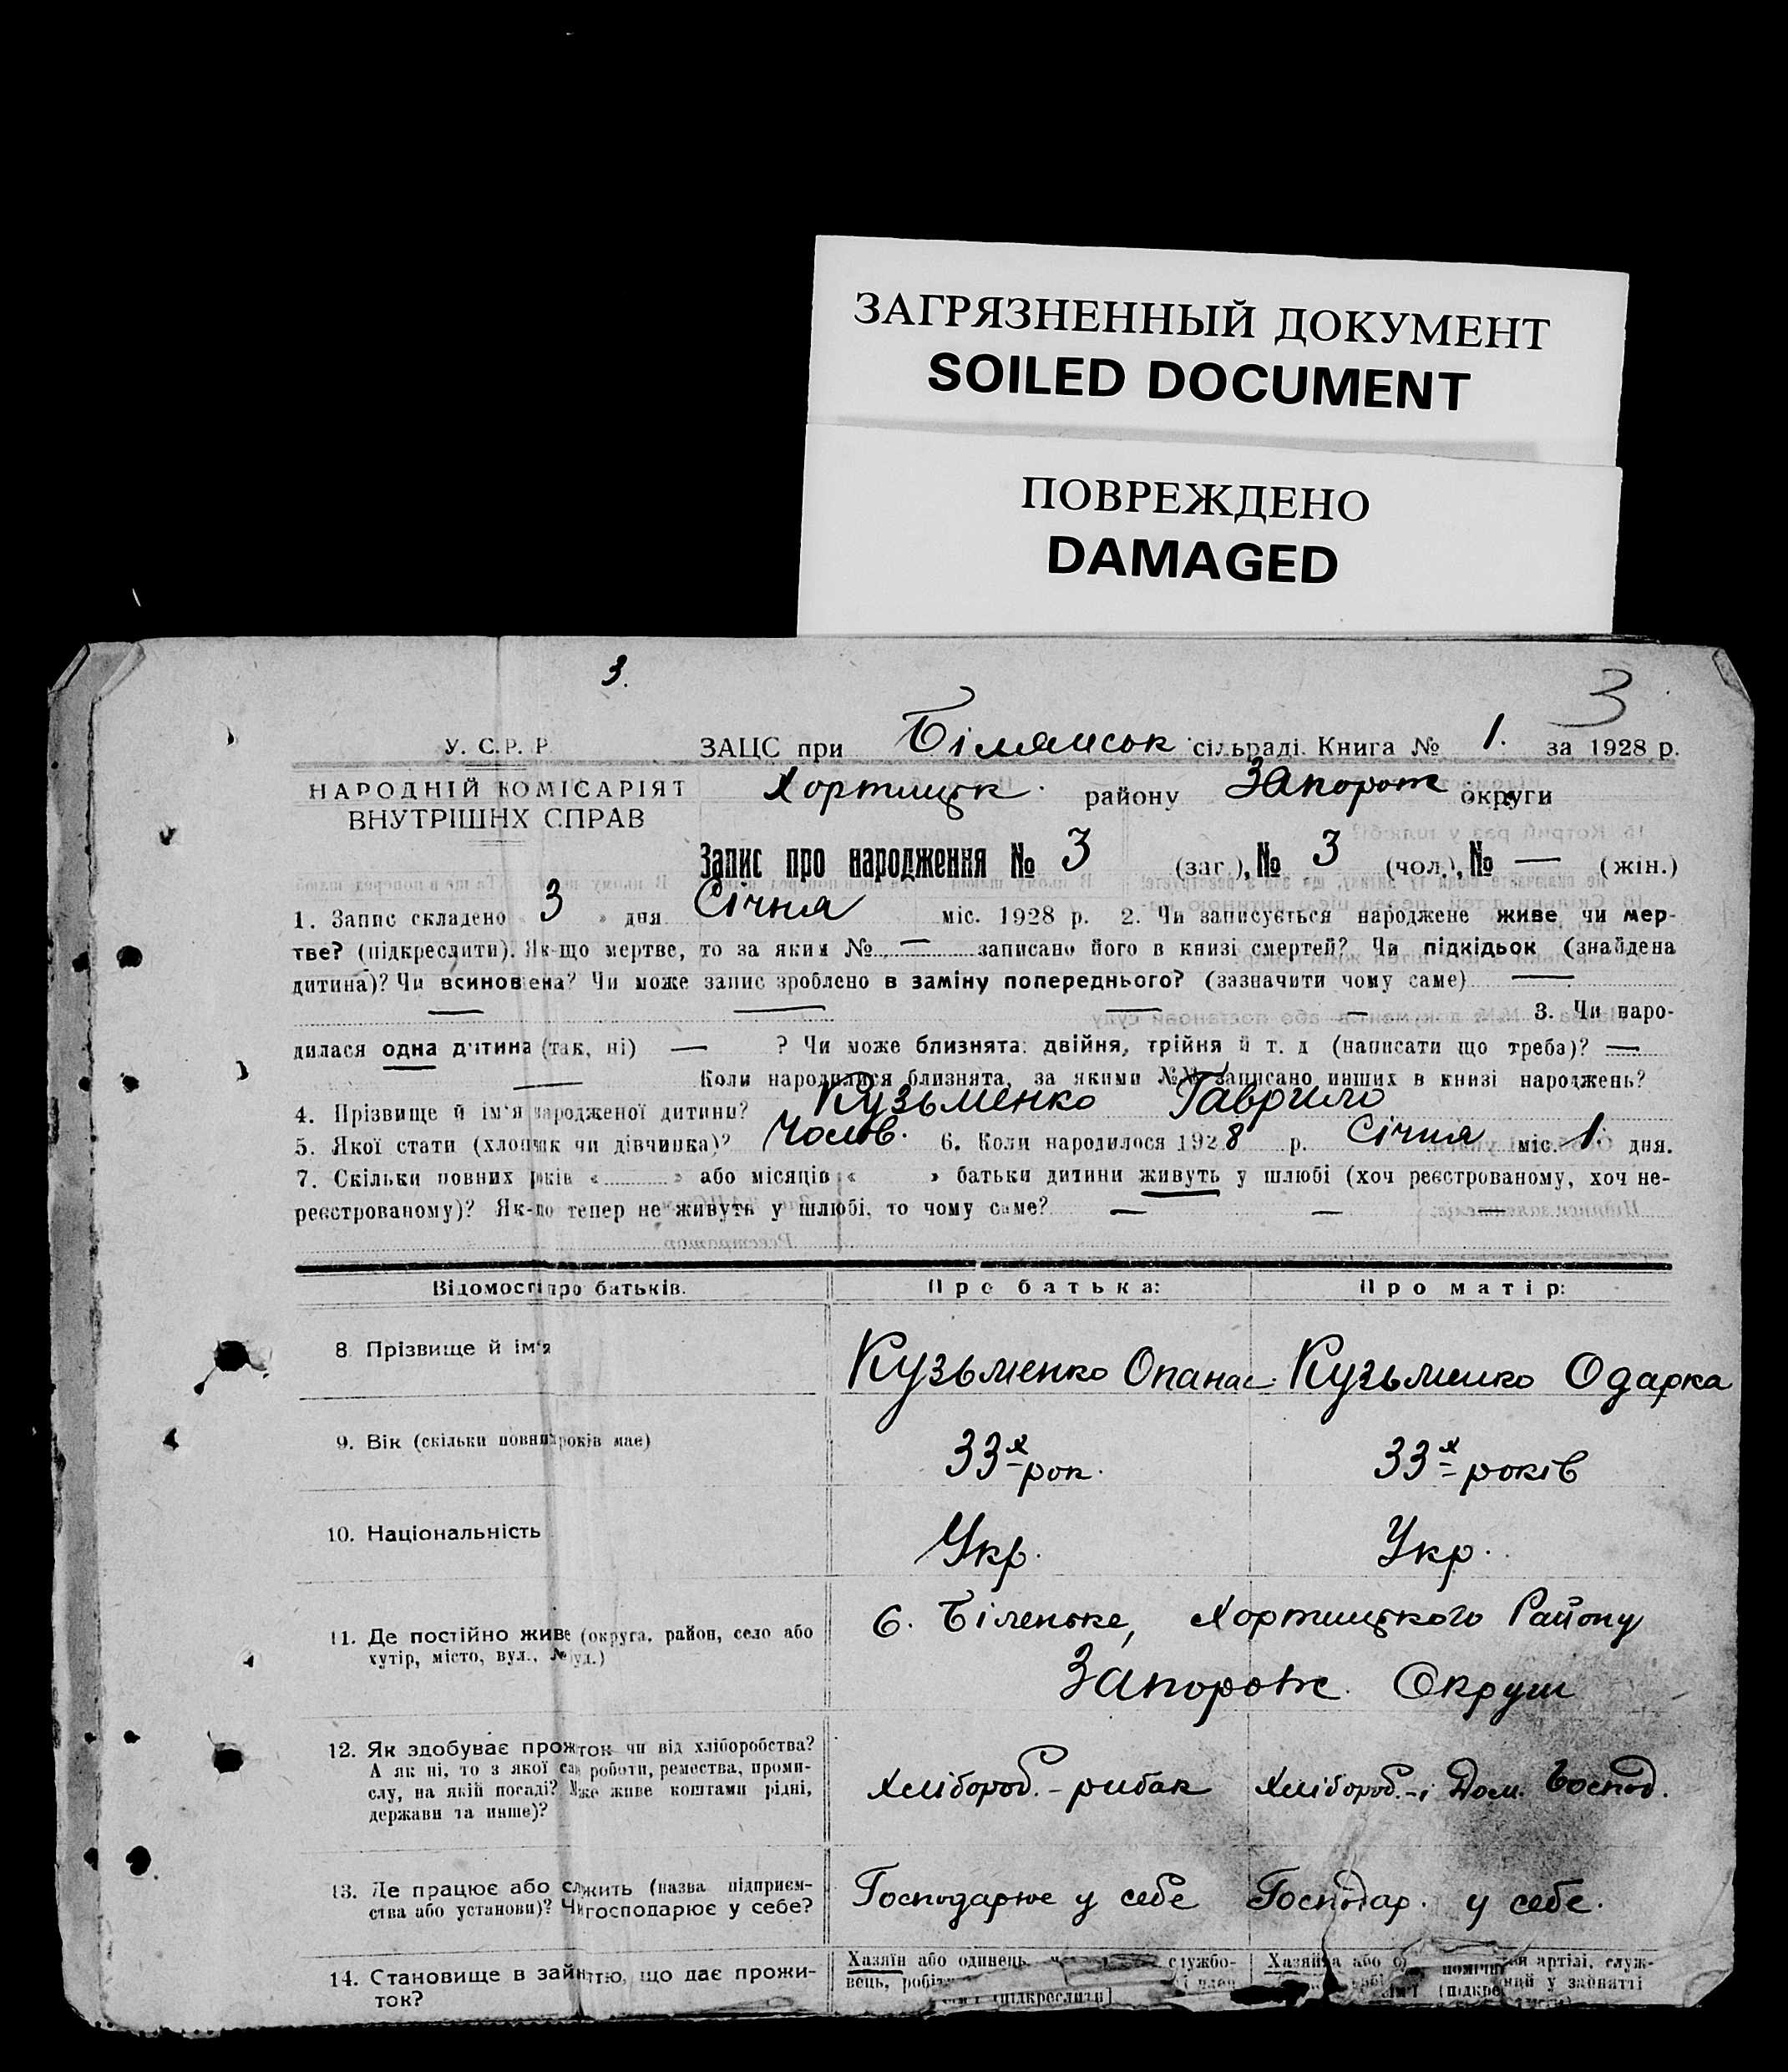 ЗАГРЯЗНЕННЫЙ ДОКУМЕНТ
SOILED DOCUMENT
ПОВРЕЖДЕНО
DAMAGED
3.
3
У. С.Р. Р.
ЗАЦС при Біленськ. сільраді. Книга № 1. за 1928 р.
НАРОДНІЙ КОМІСАРІЯТ
ВНУТРІШНІХ СПРАВ
Хортицьк. району Запорож. округи
Запис про народження № 3 (заг.), № 3 (чол.), № — (жін.)
1. Запис складено « 3 » дня Січня міс. 1928 р. 2. Чи записується народжене живе чи мер-
тве? (підкреслити). Як-що мертве, то за яким № — записано його в книзі смертей? Чи підкідьок (знайдена
дитина)? Чи всиновлена? Чи може запис зроблено в заміну попереднього? (зазначити чому саме) —
— — — — 3. Чи наро-
дилася одна дитина (так, ні) — ? Чи може близнята: двійня, трійня й т. д (написати що треба)? —
— Коли народилися близнята, за якими №№ записано инших в книзі народжень?
4. Прізвище й ім'я народженої дитини? Кузьменко Гаврило
5. Якої стати (хлопчик чи дівчинка)? Чолов. 6. Коли народилося 1928 р. Січня міс. 1 дня.
7. Скільки повних років « » або місяців « » батьки дитини живуть у шлюбі (хоч реєстрованому, хоч не-
реєстрованому)? Як-що тепер не живуть у шлюбі, то чому саме? — — —
Відомості про батьків. Про батька: Про матір:
8. Прізвище й ім'я Кузьменко Опанас Кузьменко Одарка
9. Вік (скільки повних років має) 33х рок. 33х років
10. Національність Укр. Укр.
11. Де постійно живе (округа, район, село або
хутір, місто, вул., № буд.)
С. Біленьке, Хортицького Району
Запорож. Округи
12. Як здобуває прожиток чи від хліборобства?
А як ні, то з якої саме роботи, ремества, проми-
слу, на якій посаді? Може живе коштами рідні,
держави та инше)?
Хлібороб. - рибак Хлібороб. - і Дом. Господ.
13. Де працює або служить (назва підприєм-
ства або установи)? Чи господарює у себе?
Господарює у себе Господар. у себе.
14. Становище в занятті, що дає прожи-
ток?
Хазяїн або одинець, службо-
вець,
[підкреслити]
Хазяйка або артілі, служ-
у занятті